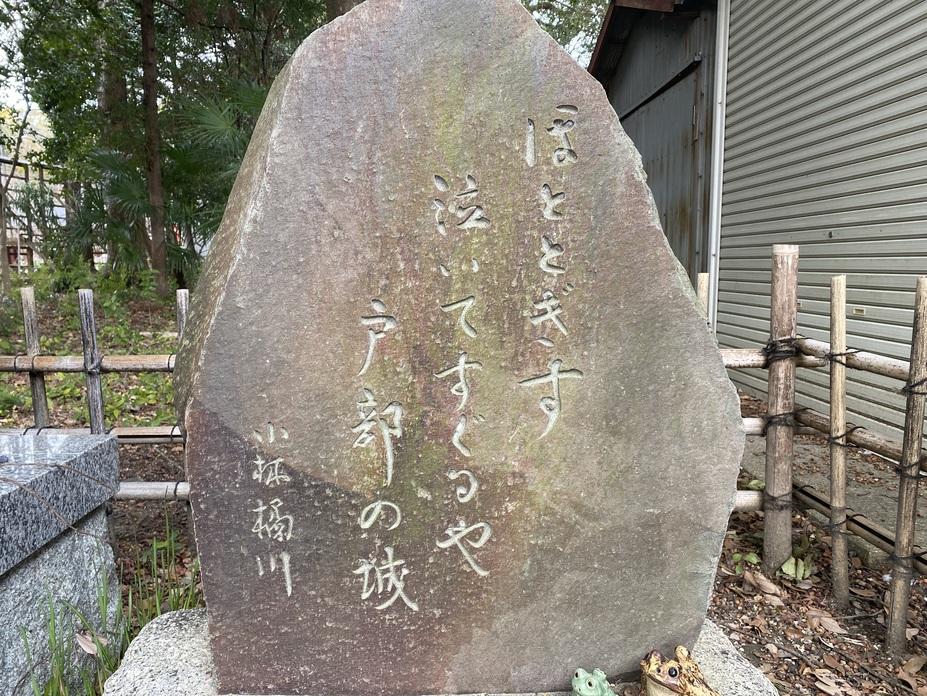 ほととぎす
泣いてすぐるや
戸部の城
小林橘川